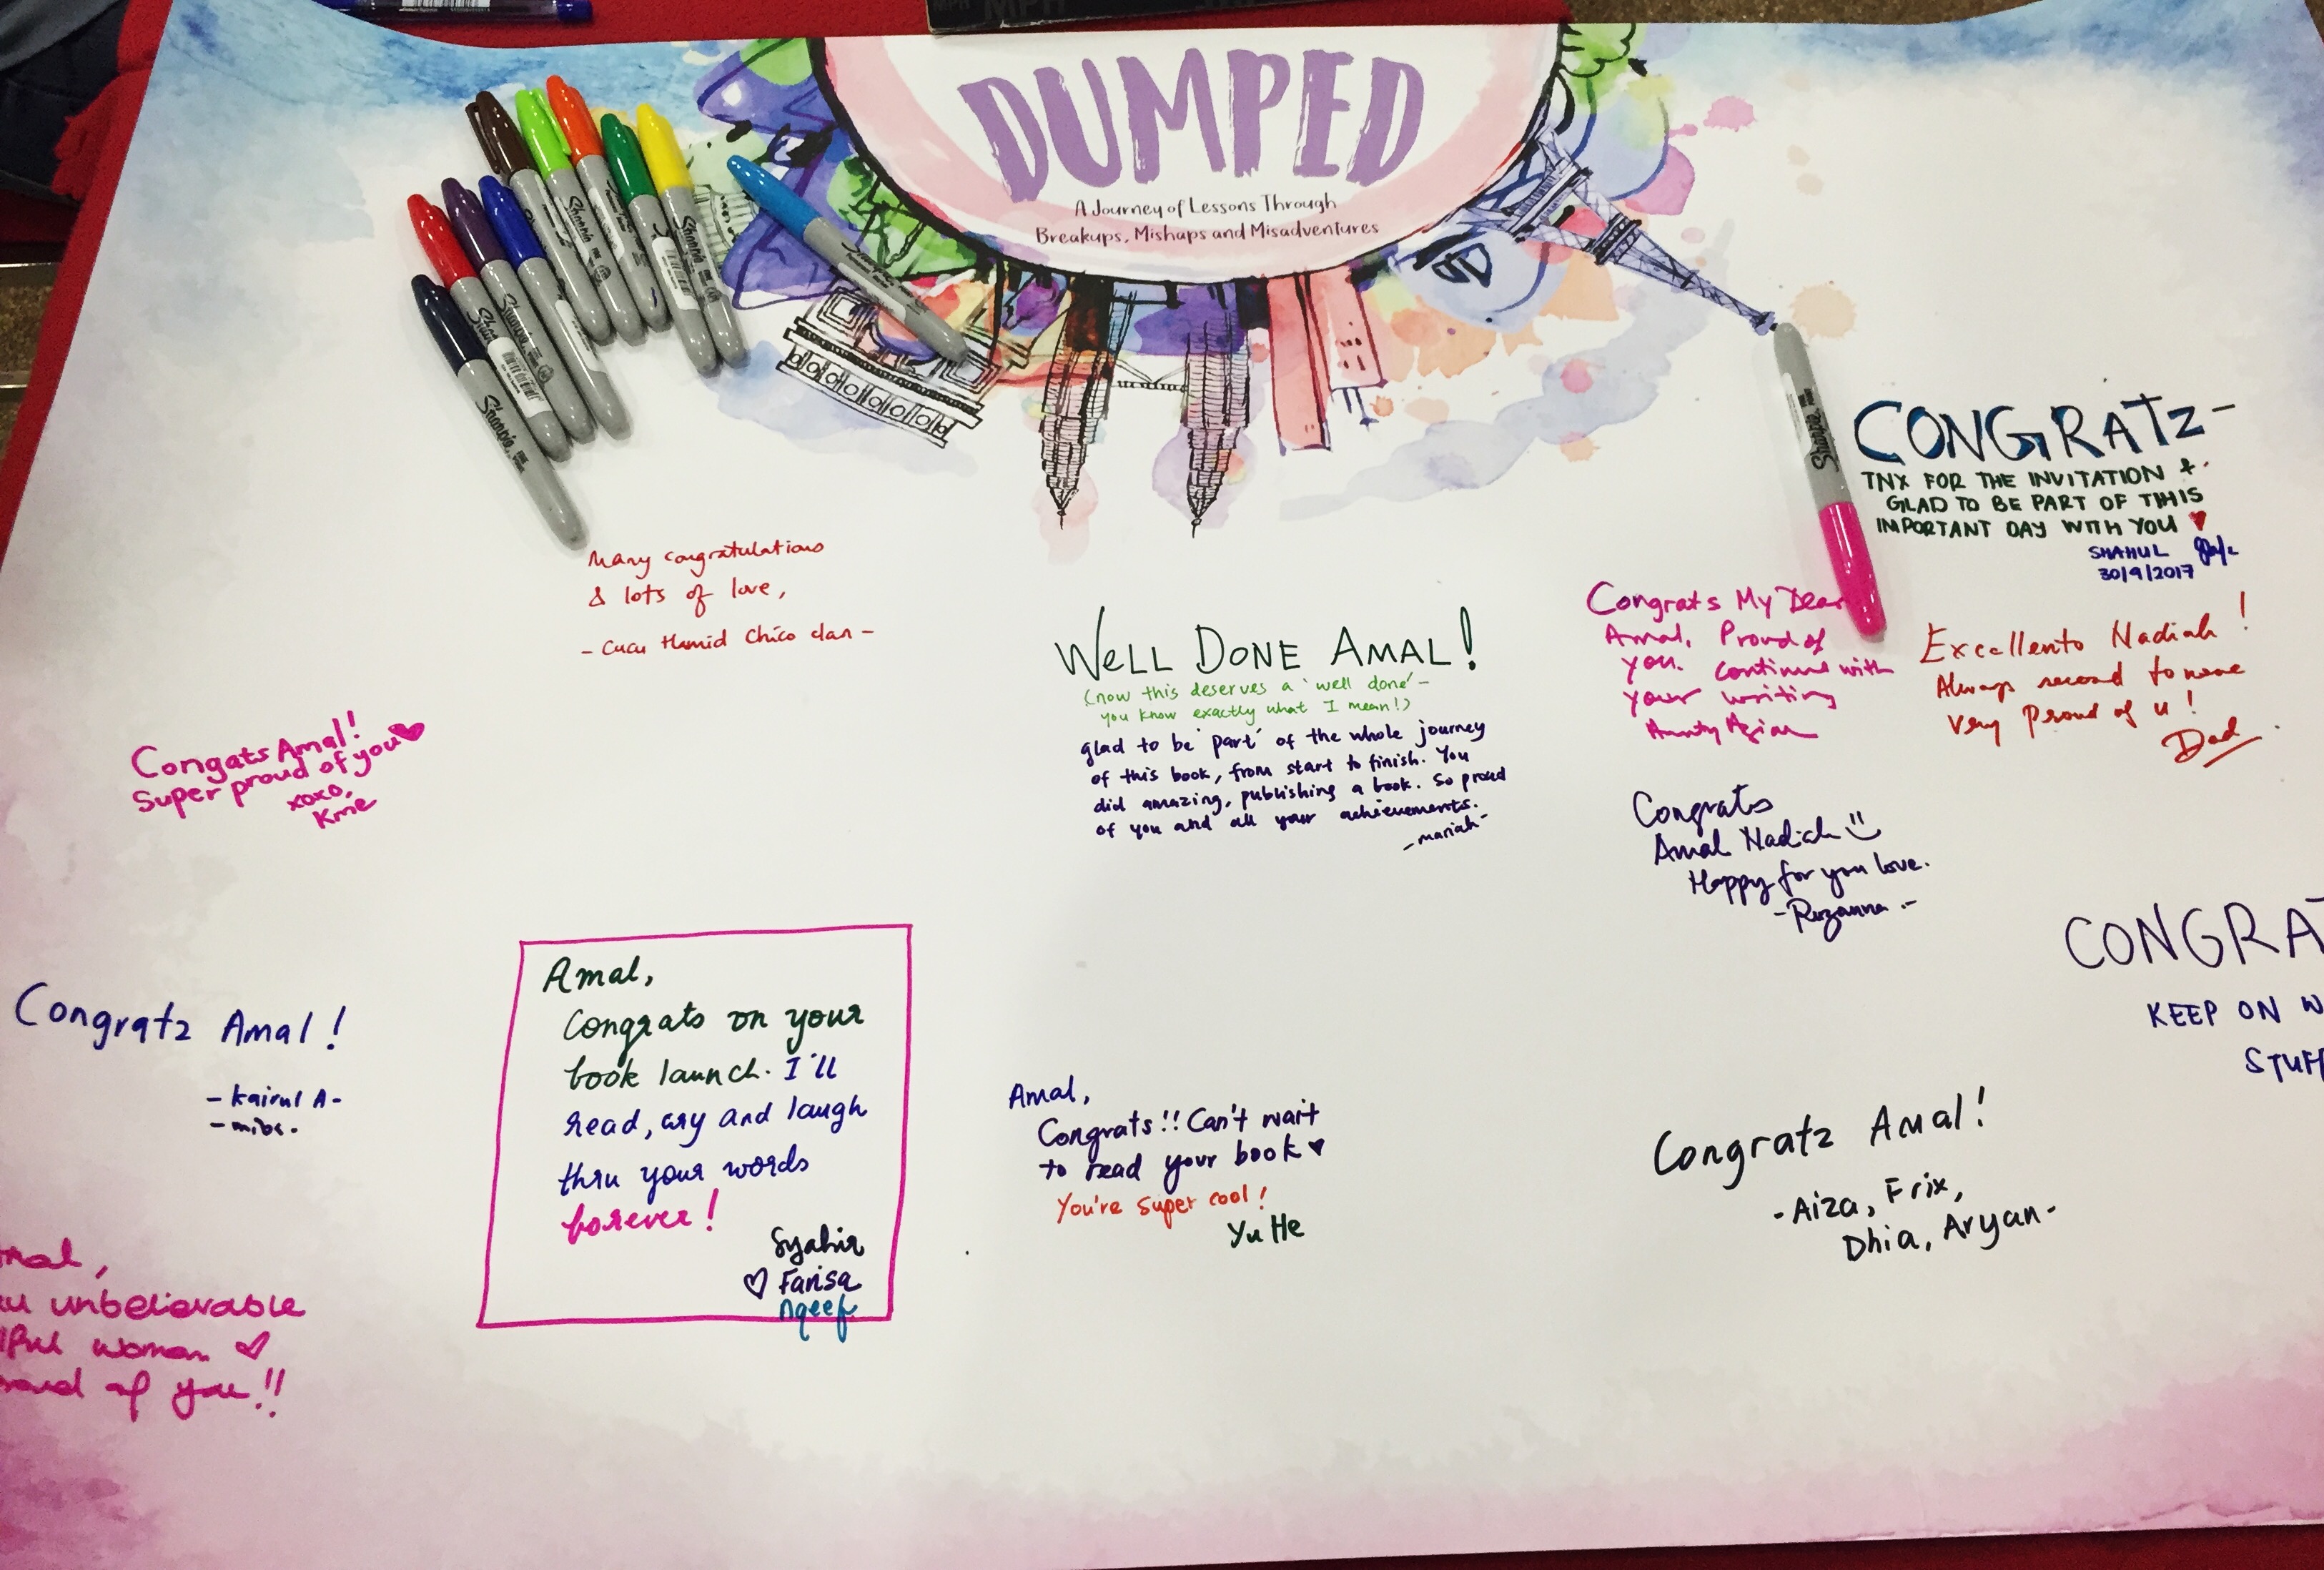 DUMPED
A Journey of Lessons Through
Breakups, Mishaps and Misadventures
CONGRATZ-
TNX FOR THE INVITATION &
GLAD TO BE PART OF THIS
IMPORTANT DAY WITH YOU
SHAHUL
30/9/2017
Many congratulations
& lots of love,
- Cucu Hamid Chico clan -
WELL DONE AMAL!
(now this deserves a 'well done' -
you know exactly what I mean!)
glad to be 'part' of the whole journey
of this book, from start to finish. You
did amazing, publishing a book. So proud
of you and all your achievements.
- mariah -
Congrats My Dear
Amal. Proud of
you. Continue with
your writing
Aunty Azian
Excellento Nadiah!
Always second to none
Very Proud of u!
Dad
Congats Amal!
Super proud of you
xoxo,
Kme
Congrats
Amal Nadiah
Happy for you love.
- Rozanna -
CONGRAT
KEEP ON W
STUFF
Congratz Amal!
- Kairul A -
Amal,
Congrats on your
book launch. I'll
read, cry and laugh
thru your words
forever!
Syahir
Farisa
Nqeef
Amal,
Congrats!! Can't wait
to read your book
You're super cool!
Yu He
Congratz Amal!
- Aiza, Frix,
Dhia, Aryan -
mal,
unbelievable
woman
of you!!
Sharpie
Sharpie
Sharpie
Sharpie
Sharpie
MPH